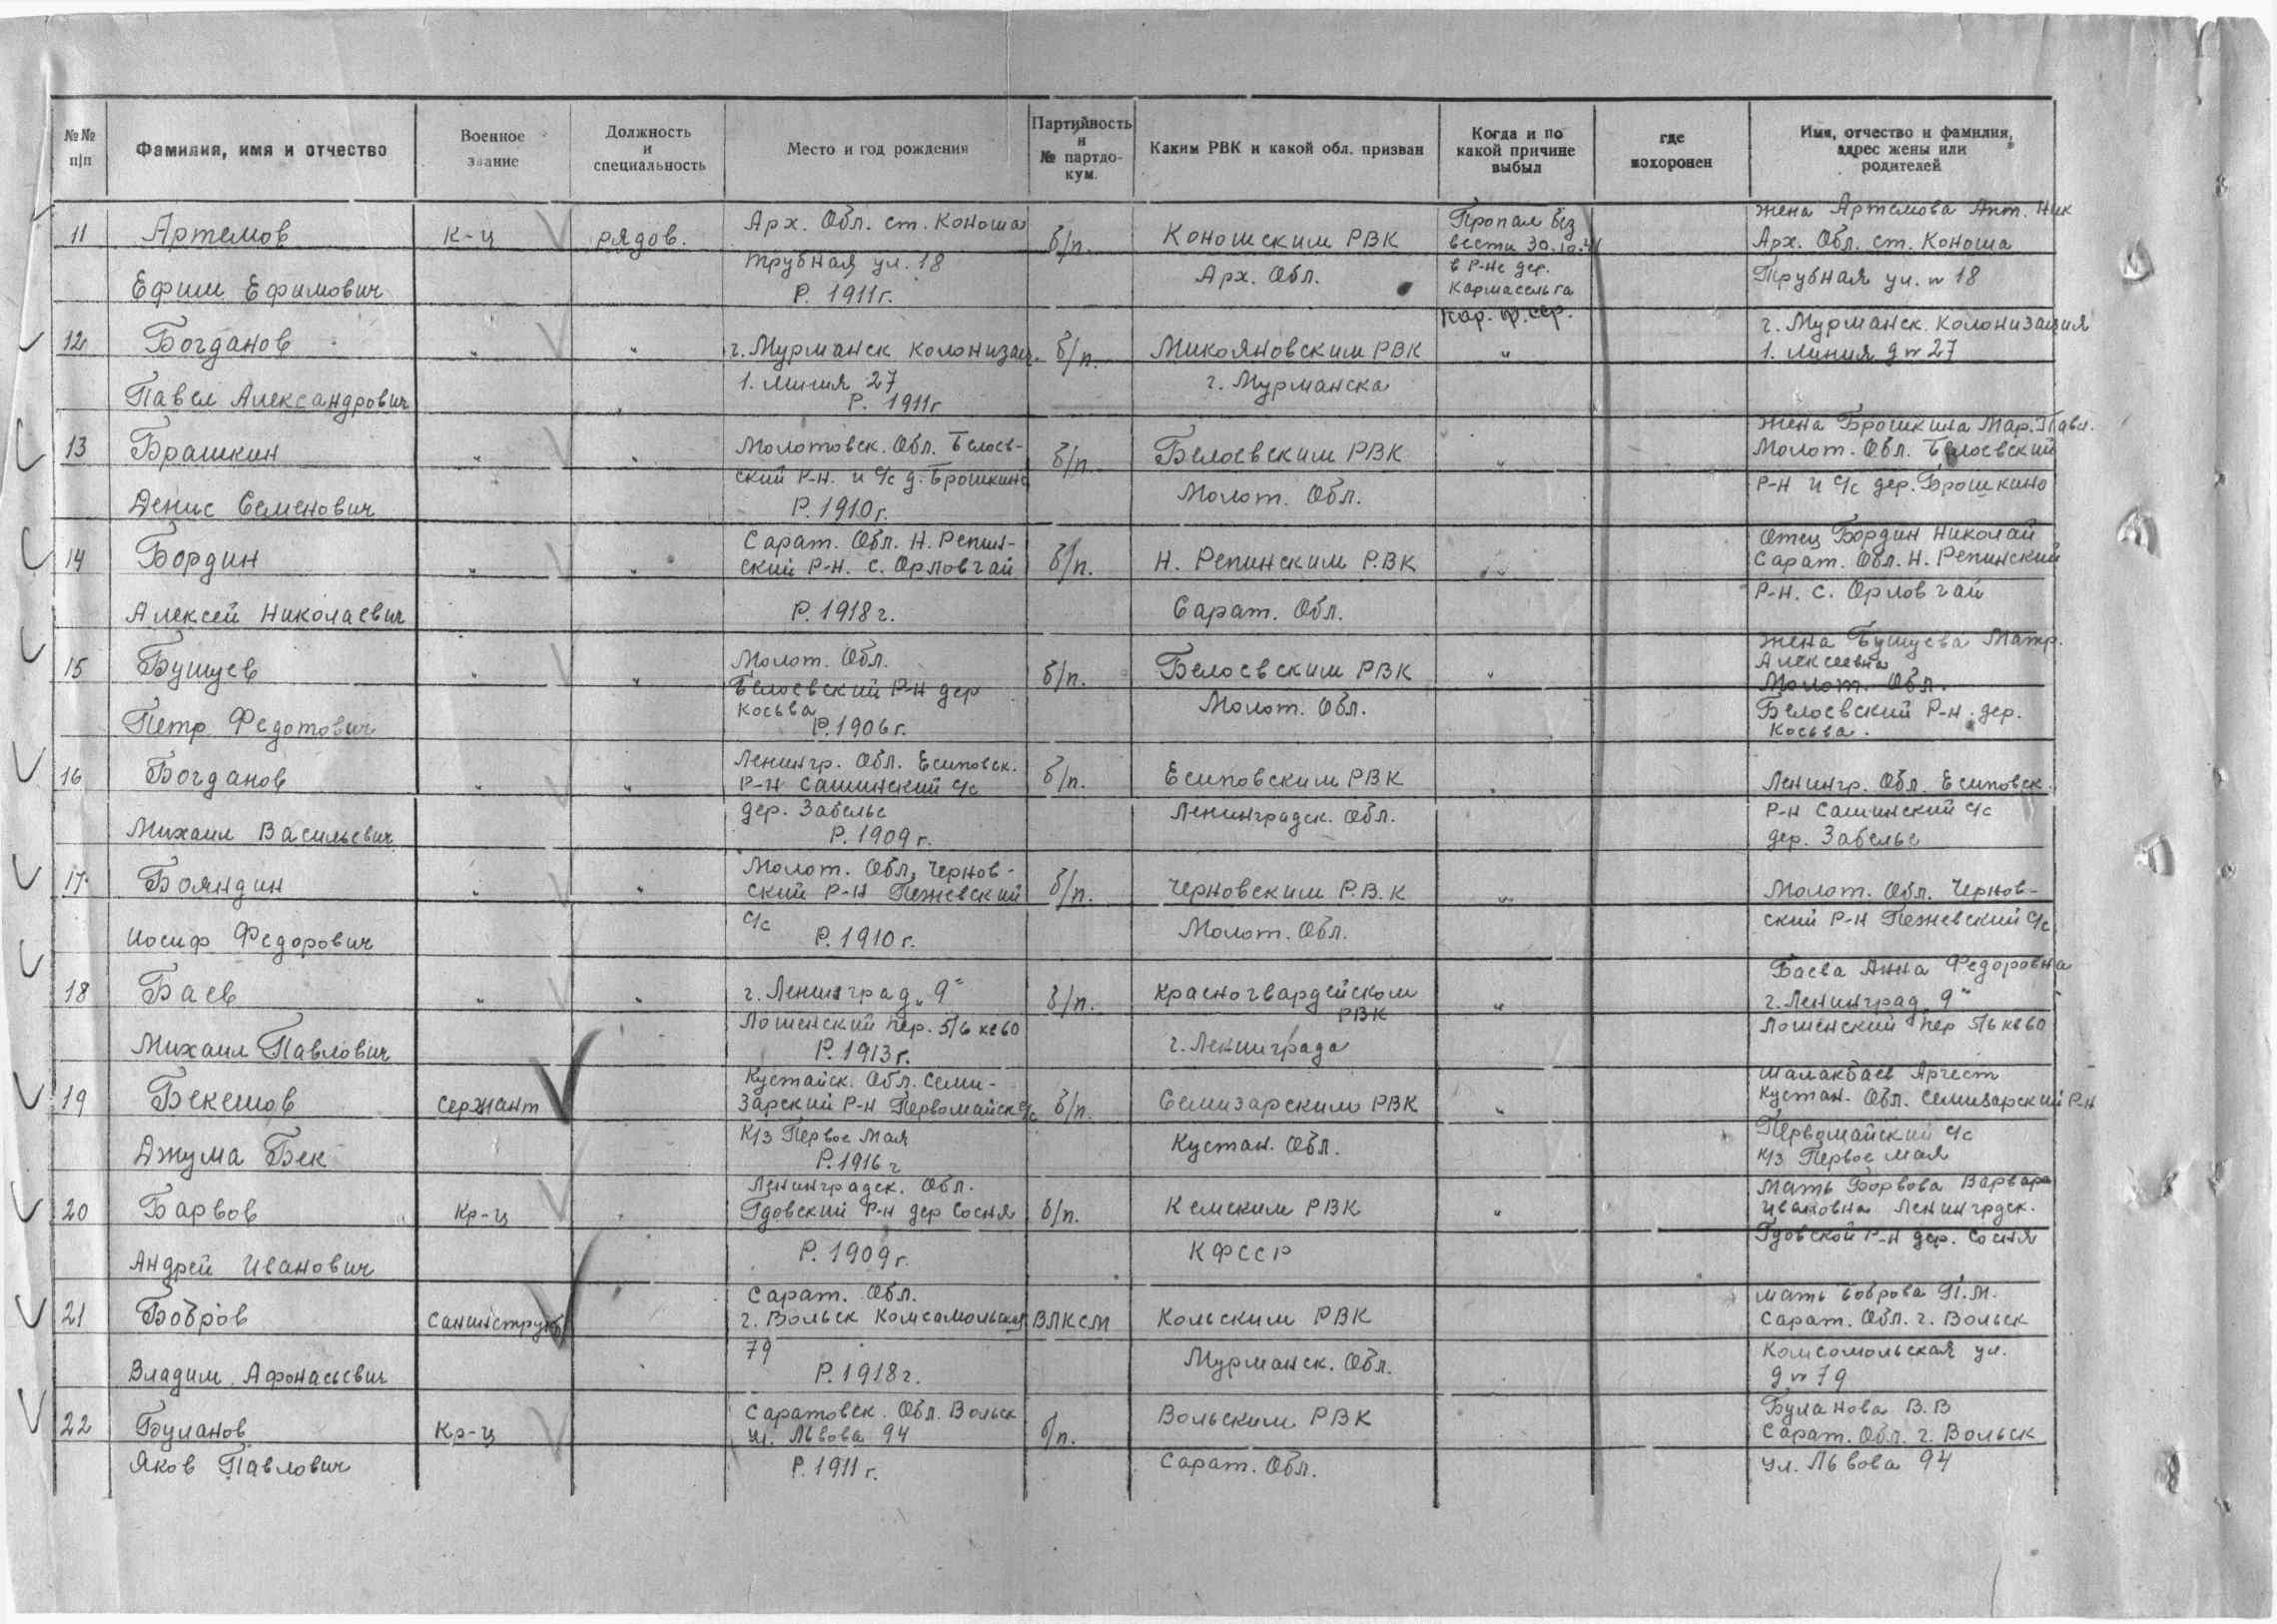 №№ п/п
Фамилия, имя и отчество
Военное звание
Должность и специальность
Место и год рождения
Партийность и № партдокум.
Каким РВК и какой обл. призван
Когда и по какой причине выбыл
где похоронен
Имя, отчество и фамилия, адрес жены или родителей
11 Артемов К-ц рядов. Арх. Обл. ст. Коноша б/п. Коношским РВК Пропал без вести 30.10.41 жена Артемова Ант. Ник
Ефим Ефимович Трубная ул. 18 Арх. Обл. в Р-не дер. Кармасельга Арх. Обл. ст. Коноша
Р. 1911г. Кар. ф. сср. Трубная ул. № 18
12 Богданов " " г. Мурманск Колонизац. б/п. Микояновским РВК " г. Мурманск. Колонизация
Павел Александрович 1. Линия 27 г. Мурманска 1. Линия д № 27
Р. 1911г
13 Брашкин " " Молотовск. Обл. Белоев- б/п. Белоевским РВК " жена Брошкина Мар. Павл.
ский Р-н. и с/с д. Брошкино Молот. Обл. Белоевский
Денис Семенович Р. 1910г. Молот. Обл. Р-н и с/с дер. Брошкино
14 Бордин " " Сарат. Обл. Н. Репин- б/п. Н. Репинским Р.ВК " Отец Бордин Николай
ский Р-н. с. Орловгай Сарат. Обл. Н. Репинский
Алексей Николаевич Р. 1918г. Сарат. Обл. Р-н. с. Орловгай
15 Бушуев " " Молот. Обл. б/п. Белоевским РВК " жена Бушуева Матр.
Белоевский Р-н дер Алексеевна
Косьва Молот. Обл. Молот. Обл.
Петр Федотович Р. 1906г. Белоевский Р-н. дер.
Косьва.
16 Богданов " " Ленингр. Обл. Есиповск. б/п. Есиповским РВК " Ленингр. Обл. Есиповск.
Р-н Сашинский с/с
дер. Забелье Ленинградск. Обл. Р-н Сашинский с/с
Михаил Васильевич Р. 1909г. дер. Забелье
17 Бояндин " " Молот. Обл. Чернов- б/п. Черновским Р.В.К " Молот. Обл. Чернов-
ский Р-н Пежевский ский Р-н Пежевский с/с
Иосиф Федорович с/с Р. 1910г. Молот. Обл.
18 Баев " " г. Ленинград „9" б/п. Красногвардейском РВК " Баева Анна Федоровна
Лошенский пер. 5/6 кв 60 г. Ленинград „9"
Михаил Павлович Р. 1913г. г. Ленинграда Лошенский пер 5/6 кв 60
19 Бекешов Сержант Кустайск. Обл. Семи- б/п. Семизарским РВК " Шалакбаев Аргест
зарский Р-н Первомайск с/с Кустан. Обл. Семизарский Р-н
К/з Первое Мая Кустан. Обл. Первомайский с/с
Джума Бек Р. 1916г к/з Первое мая
20 Барвов Кр-ц Ленинградск. Обл. б/п. Кемским РВК " Мать Борвова Варвара
Гдовский Р-н дер Сосня Ивановна Ленингрдск.
Андрей Иванович Р. 1909г. КФССР Гдовской Р-н дер. Сосня
21 Бобров Санинструк Сарат. Обл. ВЛКСМ Кольским РВК мать Боброва П.М.
г. Вольск Комсамольская Сарат. Обл. г. Вольск
79 Мурманск. Обл. Комсомольская ул.
Владим. Афонасьевич Р. 1918г. д № 79
22 Буланов Кр-ц Саратовск. Обл. Вольск б/п. Вольским РВК Буланова В.В
ул. Львова 94 Сарат. Обл. г. Вольск
Яков Павлович Р. 1911г. Сарат. Обл. ул. Львова 94